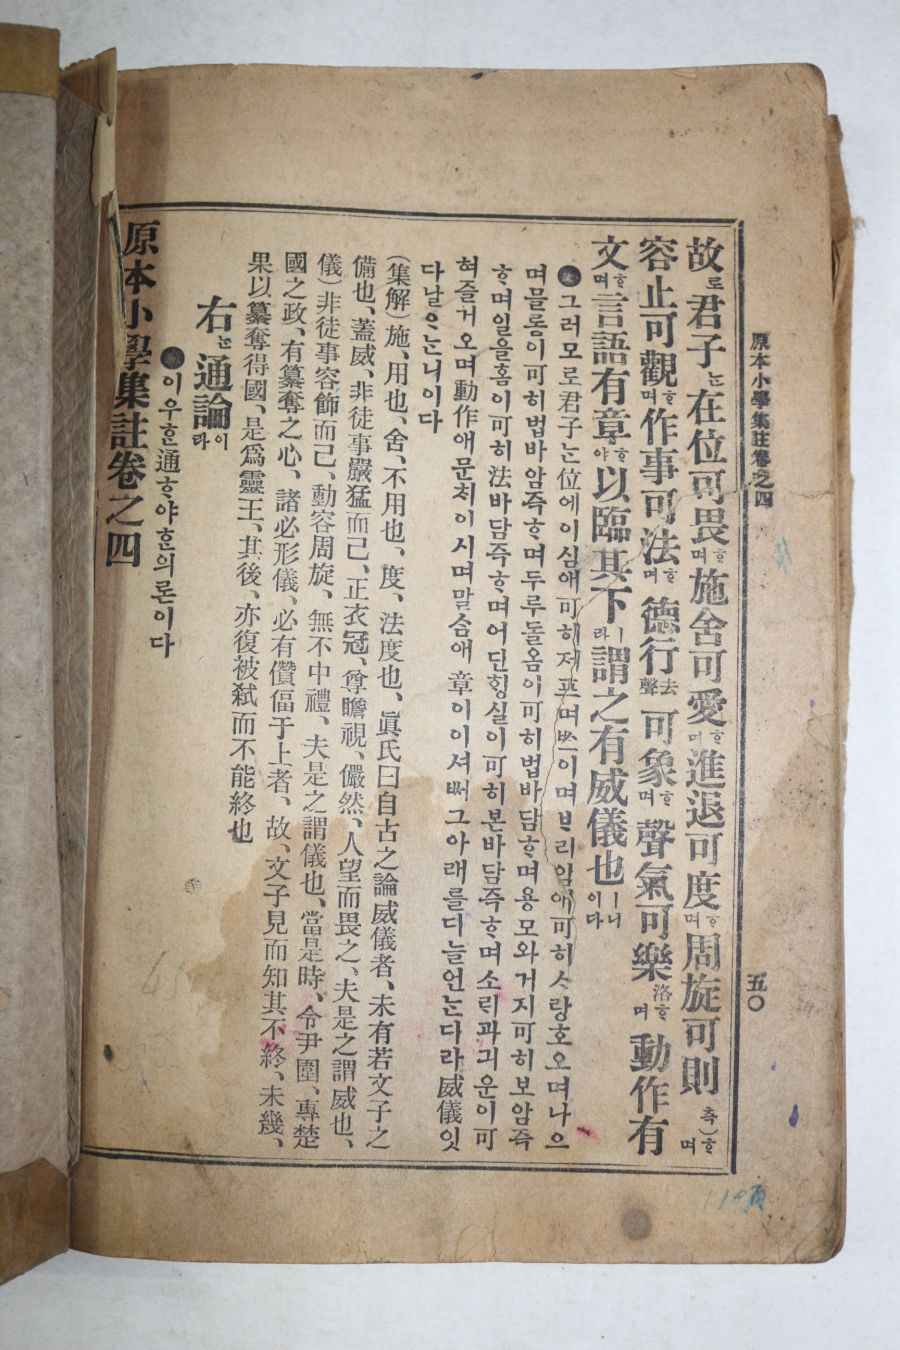 原本小學集註卷之四
五〇
故로君子ᄂᆞᆫ在位可畏ᄒᆞ며施舍可愛ᄒᆞ며進退可度ᄒᆞ며周旋可則(측)ᄒᆞ며
容止可觀ᄒᆞ며作事可法ᄒᆞ며德行去聲可象ᄒᆞ며聲氣可樂洛ᄒᆞ며動作有
文ᄒᆞ며言語有章ᄒᆞ야以臨其下ㅣ라謂之有威儀也ㅣ니이다
그러모로君子ᄂᆞᆫ位에이심애可히저프며ᄡᅳ이며ᄇᆞ리임애可히ᄉᆞ랑호오며나으
며믈롱이可히법바암즉ᄒᆞ며두루돌옴이可히법바담ᄒᆞ며용모와거지可히보암즉
ᄒᆞ며일을홈이可히法바담즉ᄒᆞ며어딘ᄒᆡᆼ실이可히본바담즉ᄒᆞ며소ᄅᆡ과긔운이可
혀즐거오며動作애문처이시며말ᄉᆞᆷ애章이이셔ᄡᅥ그아래를디늘언ᄂᆞᆫ다라威儀잇
다날ᄋᆞᄂᆞ니이다
(集解)施、用也、舍、不用也、度、法度也、眞氏曰自古之論威儀者、未有若文子之
備也、蓋威、非徒事嚴猛而已、正衣冠、尊瞻視、儼然、人望而畏之、夫是之謂威也、
儀)非徒事容飾而已、動容周旋、無不中禮、夫是之謂儀也、當是時、令尹圍、專楚
國之政、有簒奪之心、諸必形儀、必有僭偪于上者、故、文子見而知其不終、未幾、
果以簒奪得國、是爲靈王、其後、亦復被弑而不能終也
右ᄂᆞᆫ通論이라
이우흔通ᄒᆞ야ᄒᆞᆫ의론이다
原本小學集註卷之四